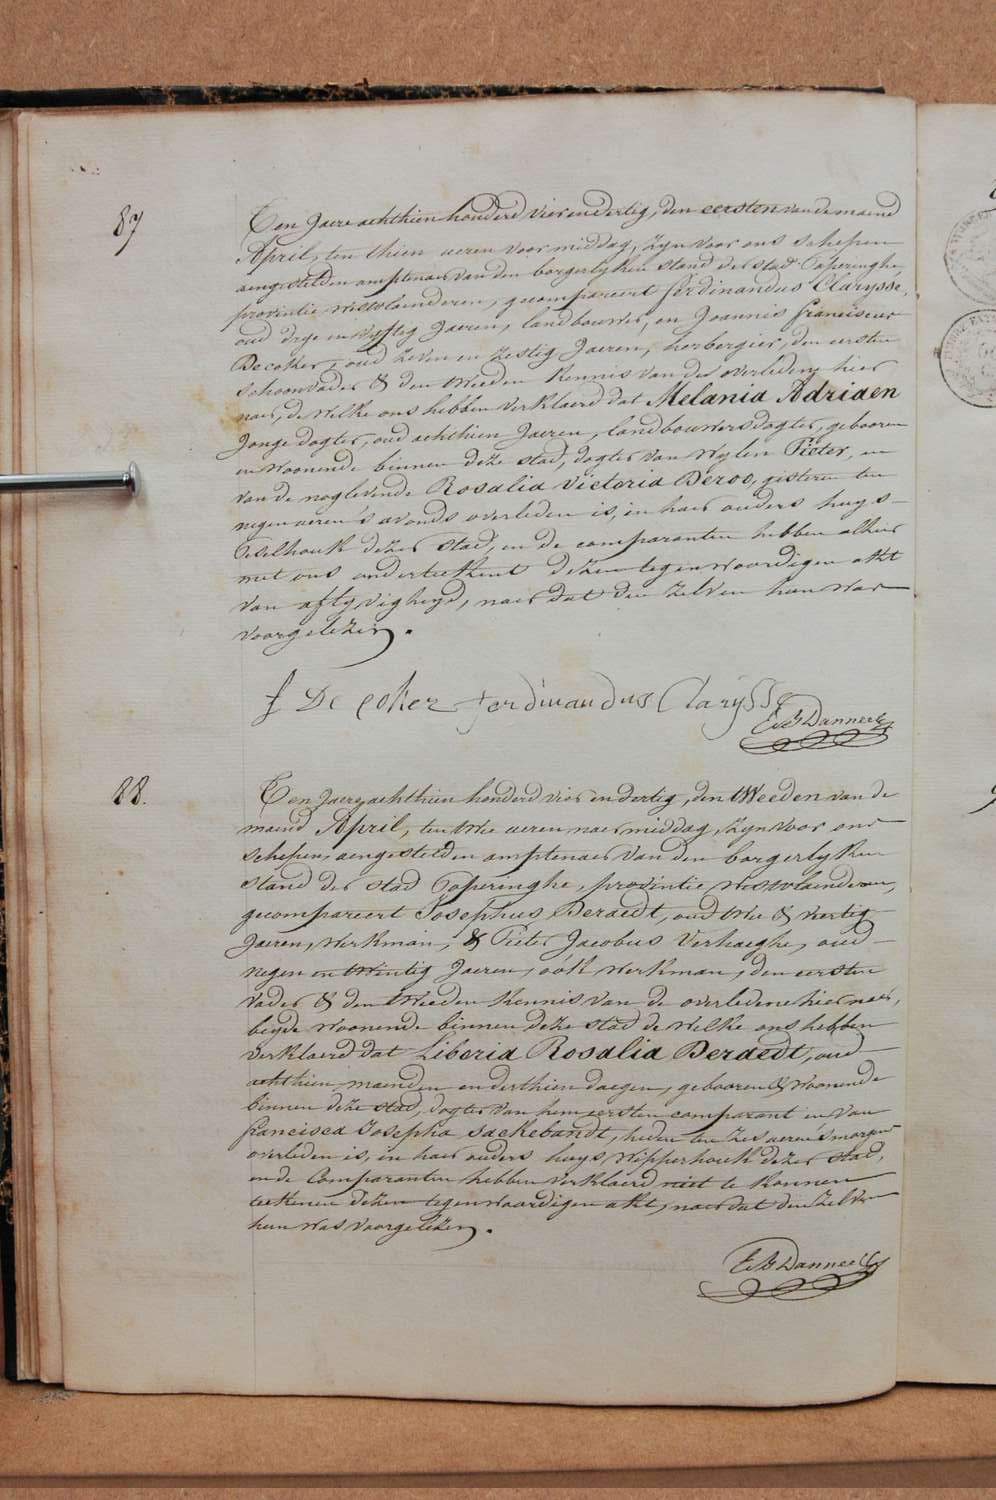 87
Ten Jaere achthien honderd vier en dertig, den eersten van de maend
April, ten thien ueren voor middag, zyn voor ons schepen
aengestelden amptenaer van den borgerlyken stand der stad Poperinghe,
provintie westvlaenderen, gecompareert Ferdinandus Clarysse,
oud drye en vyftig Jaeren, landbouwer, en Joannis franciscus
Decoker, oud zeven en zestig Jaeren, herbergier, den eersten
schoonvader & den tweeden kennis van de overledene hier
naer, de welke ons hebben verklaerd dat Melania Adriaen
Jonge dogter, oud achthien Jaeren, landbouwersdogter, gebooren
en woonende binnen deze stad, dogter van wylen Pieter, en
van de noglevende Rosalia Victoria Deroo, gisteren ten
negen ueren 's avonds overleden is, in haer ouders huys
Eeselhouk dezer stad, en de comparanten hebben alhier
met ons onderteekent dezen tegenwoordigen akt
van aflyvigheyd, naer dat den zelven hun was
voorgelezen.
f De Coker ferdinandus Clarysse
88.
Ten Jaere achthien honderd vier en dertig, den tweeden van de
maend April, ten twee ueren naer middag, zyn voor ons
schepen, aengestelden amptenaer van den borgerlyken
stand der stad Poperinghe, provintie westvlaenderen,
gecompareert Josephus Deraedt, oud twee & veertig
Jaeren, werkman, & Pieter Jacobus Verhaeghe, oud
negen en twintig Jaeren, ook werkman, den eersten
vader & den tweeden kennis van de overledene hier naer,
beyde woonende binnen deze stad de welke ons hebben
verklaerd dat Liboria Rosalia Deraedt, oud
achthien maenden en derthien daegen, gebooren & woonende
binnen deze stad, dogter van hem eersten comparant en van
francisca Josepha sackebandt, heden ten zes ueren 'smorgens
overleden is, in haer ouders huys, wipperhouk dezer stad,
en de Comparanten hebben verklaerd niet te konnen
teekenen dezen tegenwoordigen akt, naer dat den zelven
hun was voorgelezen.